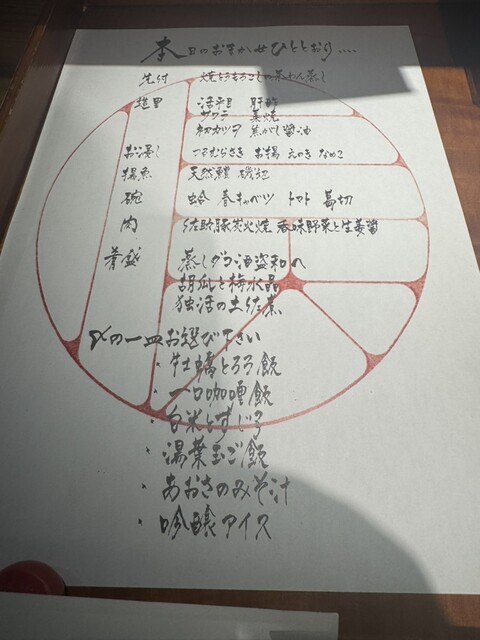 本日のおまかせひととおり....
先付 焼とうもろこしの茶わん蒸し
造里 活平目 肝酢
サワラ 藁焼
初カツヲ 焦がし醤油
お凌ぎ つぶむらさき お揚 えのき なめこ
揚魚 天然車 磯辺
碗 蛤 春キャベツ トマト 葛切
肉 佐助豚炭火焼 香味野菜と生姜醤
肴盛 蒸しダコ油盗和え
胡瓜と梅水晶
独活の土佐煮
〆の一皿お選び下さい
・牡蠣とろろ飯
・一口咖喱飯
・白米とすじこ
・湯葉玉ご飯
・あおさのみそ汁
・吟醸アイス